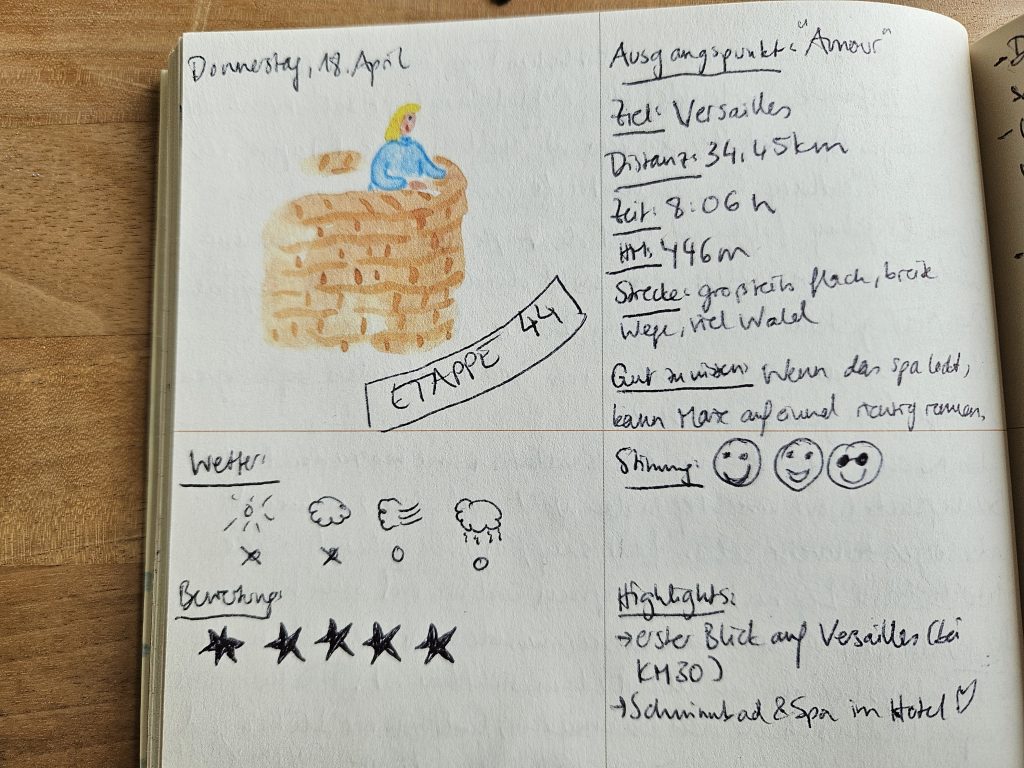 Donnerstag, 18. April
ETAPPE 44
Ausgangspunkt: "Amour"
Ziel: Versailles
Distanz: 34,45km
Zeit: 8:06 h
HM: 446m
Strecke: großteils flach, breite
Wege, viel Wald
Gut zu wissen: Wenn das Spa lockt,
kann Max auf einmal richtig rennen.
Wetter:
Bewertung:
Stimmung:
Highlights:
→ erster Blick auf Versailles (bei
KM30)
→ Schwimmbad & Spa im Hotel